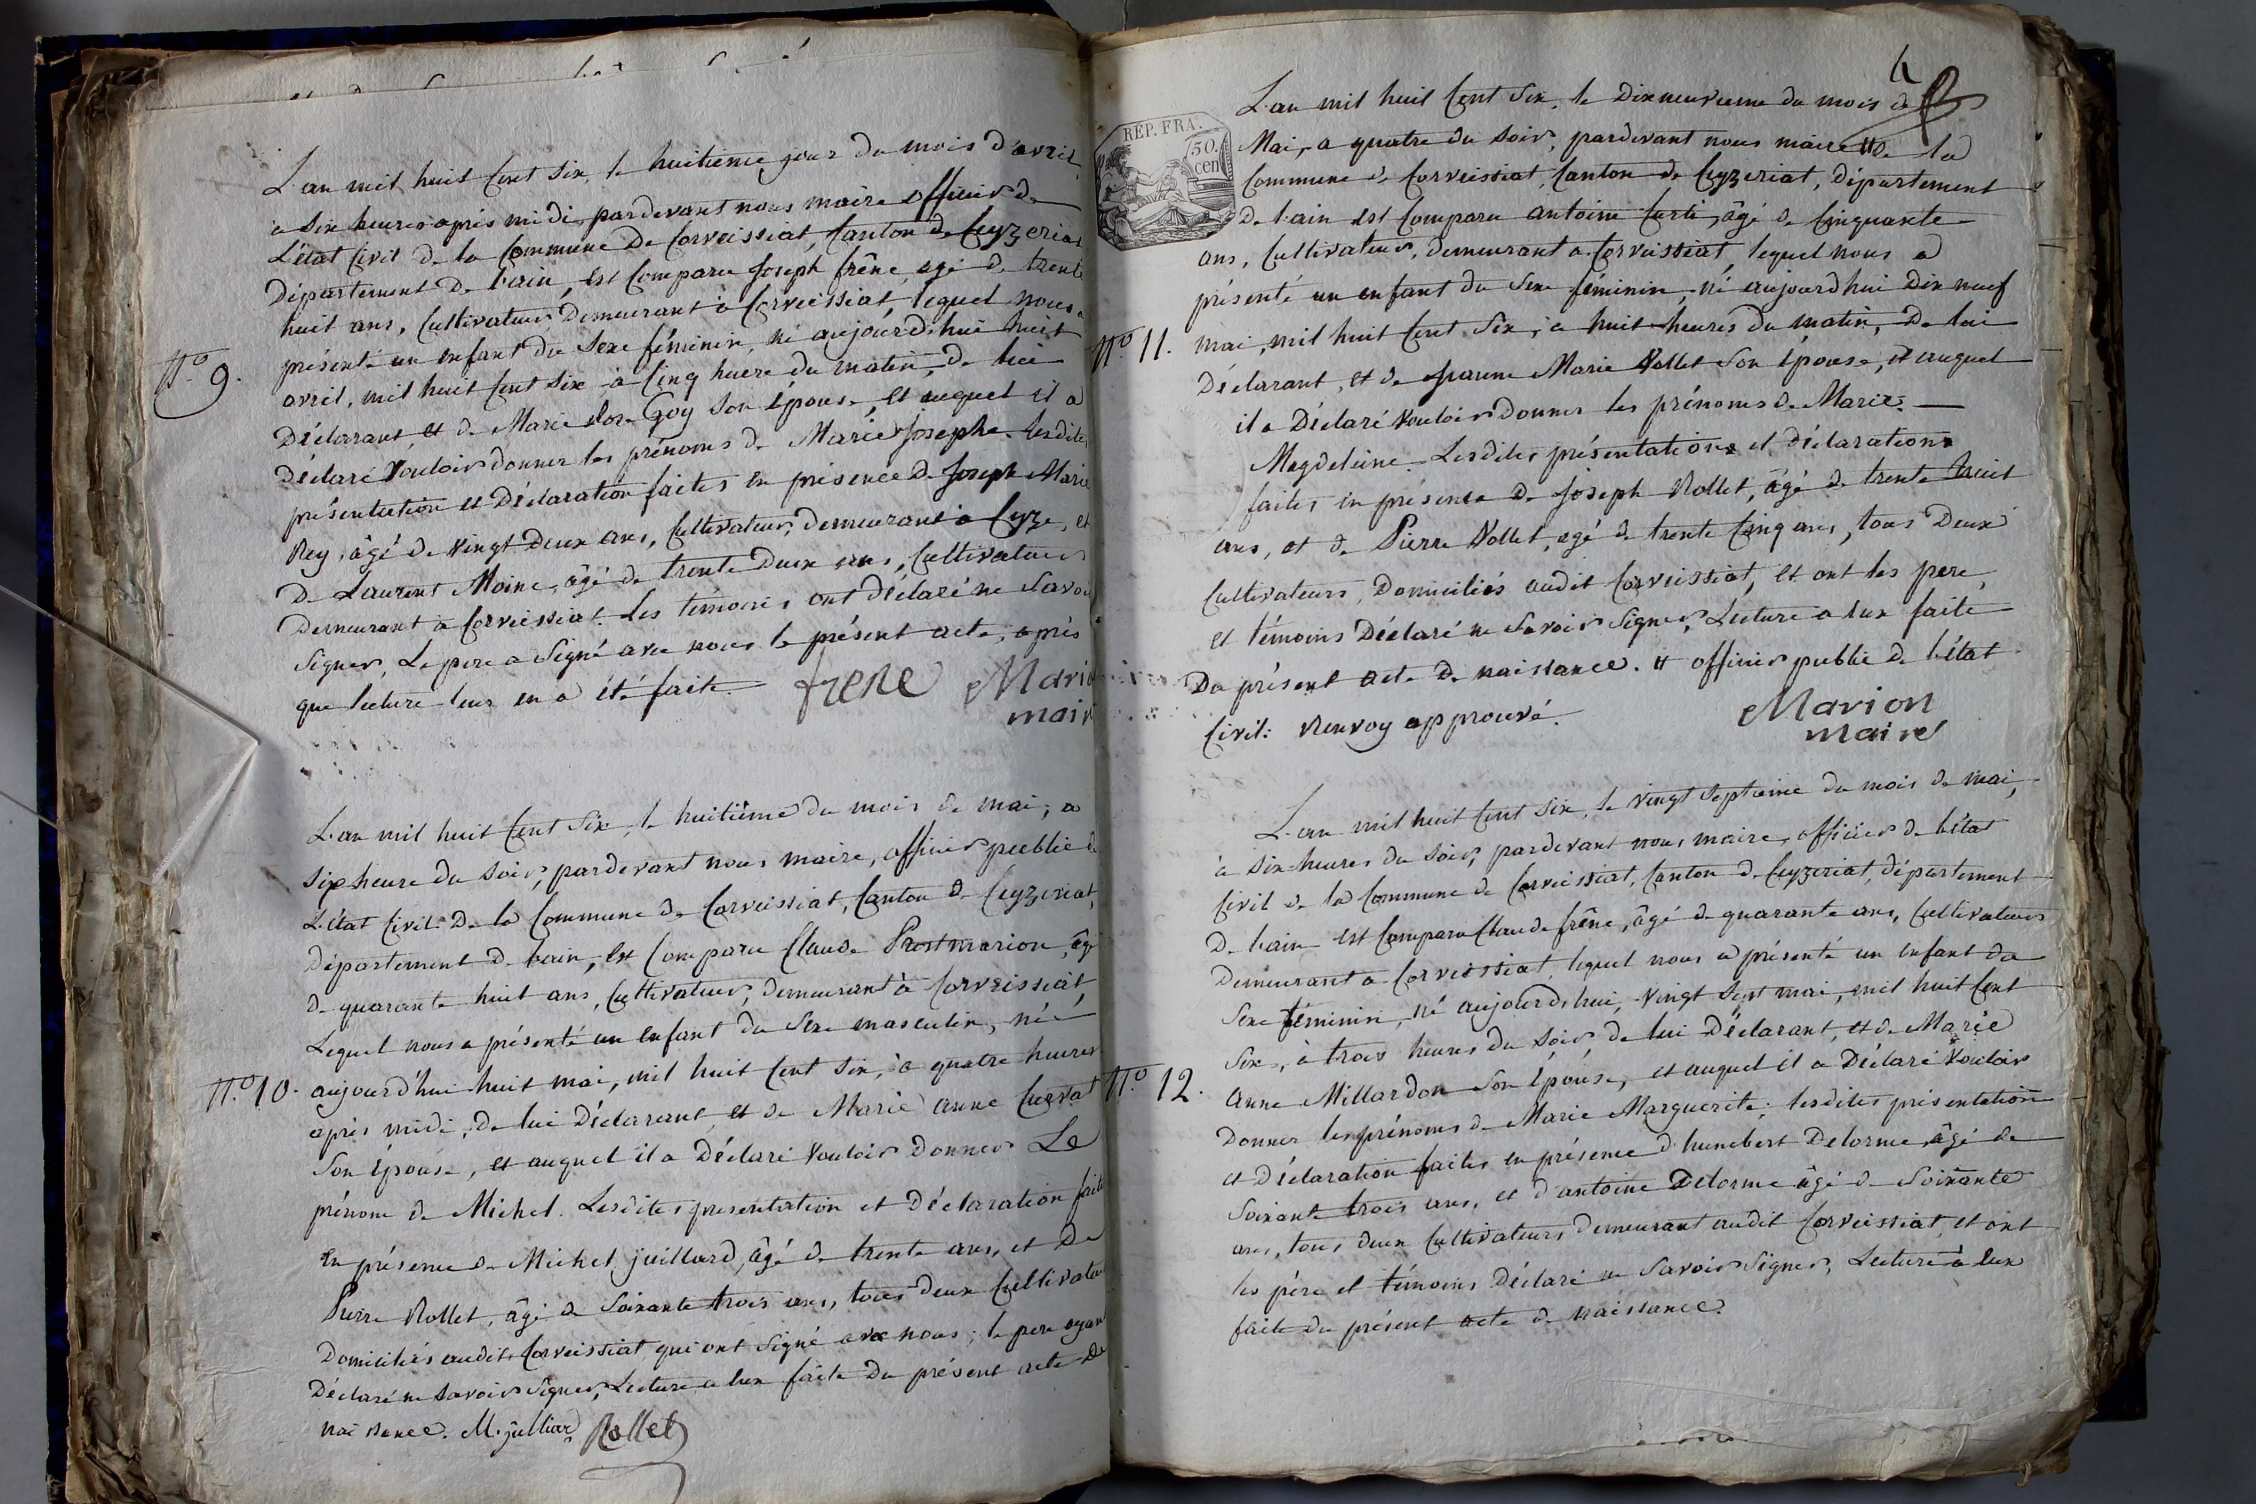 L'an mil huit Cent Six, le huitieme jour du mois d'avril,
à Six heures après midi, pardevant nous maire officier de
L'état Civil de la Commune de Corveissiat, Canton de Ceyzeriat
Département de l'ain, est Comparu Joseph frêne, agé de trente
huit ans, Cultivateur Demeurant à Corveissiat, lequel nous a
présenté un enfant du Sexe féminin, né aujourd'hui huit
N.o 9.
avril, mil huit Cent Six à Cinq heure du matin, de lui
Déclarant, et de Marie Goy Son épouse, et auquel il a
Déclaré Vouloir donner les prénoms de Marie Josephe. Lesdites
présentation et Déclaration faites en présence de Joseph Marie
Rey, âgé de Vingt deux ans, Cultivateur, demeurant à Ceyze, et
de Laurent Moine, âgé de trente deux ans, Cultivateur
Demeurant à Corveissiat. Les témoins ont déclaré ne Savoir
Signer, Le pere a Signé avec nous le présent acte, après
que lecture leur en a été faite.
frene Marion
maire
L'an mil huit Cent Six, le huitième du mois de mai, a
Six heure du Soir, pardevant nous maire, officier public de
L'état Civil De la Commune de Corveissiat, Canton de Ceyzeriat,
Département de l'ain, est Comparu Claude Prostmarion, âgé
de quarante huit ans, Cultivateur, demeurant à Corveissiat,
Lequel nous a présenté un enfant du Sexe masculin, né
N.o 10.
aujourd'hui huit mai, mil huit Cent Six, à quatre heures
après midi, de lui Déclarant, et de Marie anne
Son épouse, et auquel il a Déclaré Vouloir Donner Le
prénom de Michel. Lesdites presentation et Déclaration faites
En présence de Michel juillard, âgé de trente ans, et De
Pierre Rollet, âgé de Soixante trois ans, tous deux Cultivateurs
Domiciliés audit Corveissiat qui ont Signé avec nous; le pere ayant
Déclaré ne Savoir Signer, Lecture a eux faite du présent acte de
naissance. M. julliard Rollet
4
L'an mil huit Cent Six, le Dixneuvieme du mois de
REP. FRA.
50.
cen
Mai, a quatre du Soir, pardevant nous maire # de la
Commune de Corveissiat, Canton de Ceyzeriat, Département
de l'ain est Comparu antoine Curti, âgé de Cinquante
ans, Cultivateur, demeurant a Corveissiat, lequel nous a
présenté un enfant du Sexe féminin, né aujourd'hui Dix neuf
N.o 11.
mai, mil huit Cent Six, à huit heures du matin, De lui
Déclarant, et de Jeanne Marie Vollet Son épouse, et auquel
il a Déclaré Vouloir donner les prénoms de Marie
Magdeleine. Lesdites présentations et déclarations
faites en présence de Joseph Rollet, âgé de trente huit
ans, et de Pierre Vollet, agé de trente Cinq ans, tous Deux
Cultivateurs, Domiciliés audit Corveissiat, et ont les pere,
et témoins Déclaré ne Savoir Signer, Lecture a eux faite
Du présent acte de naissance. # officier public de l'état
Civil: Renvoy approuvé.
Marion
maire
L'an mil huit Cent Six, le vingt Septieme du mois de mai,
à Six heures du Soir, pardevant nous maire, officier de l'état
Civil de la Commune de Corveissiat, Canton de Ceyzeriat, département
De l'ain est Comparu Claude frêne, âgé de quarante ans, Cultivateur
Demeurant a Corveissiat, lequel nous a présenté un enfant du
Sexe féminin, né aujourd'hui, Vingt Sept mai, mil huit Cent
Six, à trois heures du Soir de lui Déclarant, et de Marie
N.o 12.
anne Millardon Son épouse, et auquel il a Déclaré Vouloir
Donner les prénoms de Marie Marguerite; lesdites présentation
et Déclaration faites en présence d'humbert Delorme, âgé de
Soixante trois ans, et d'antoine Delorme âgé de Soixante
ans, tous deux Cultivateurs demeurant audit Corveissiat, et ont
les père et témoins Déclaré ne Savoir Signer, Lecture à eux
faite du présent acte de naissance.